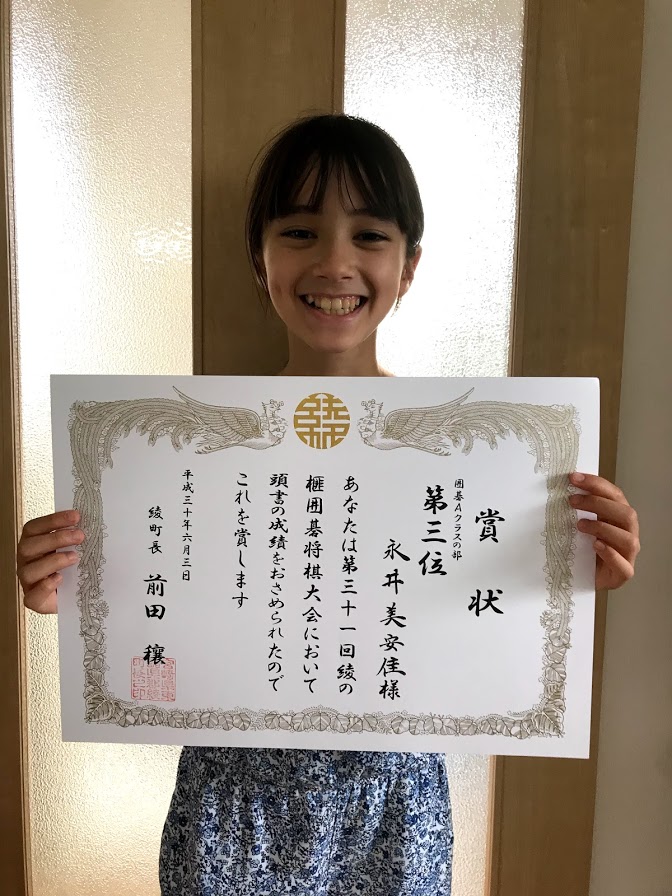 賞状
囲碁Aクラスの部
第三位
永井美安佳様
あなたは第三十一回綾の
榧囲碁将棋大会において
頭書の成績をおさめられたので
これを賞します
平成三十年六月三日
綾町長 前田穰